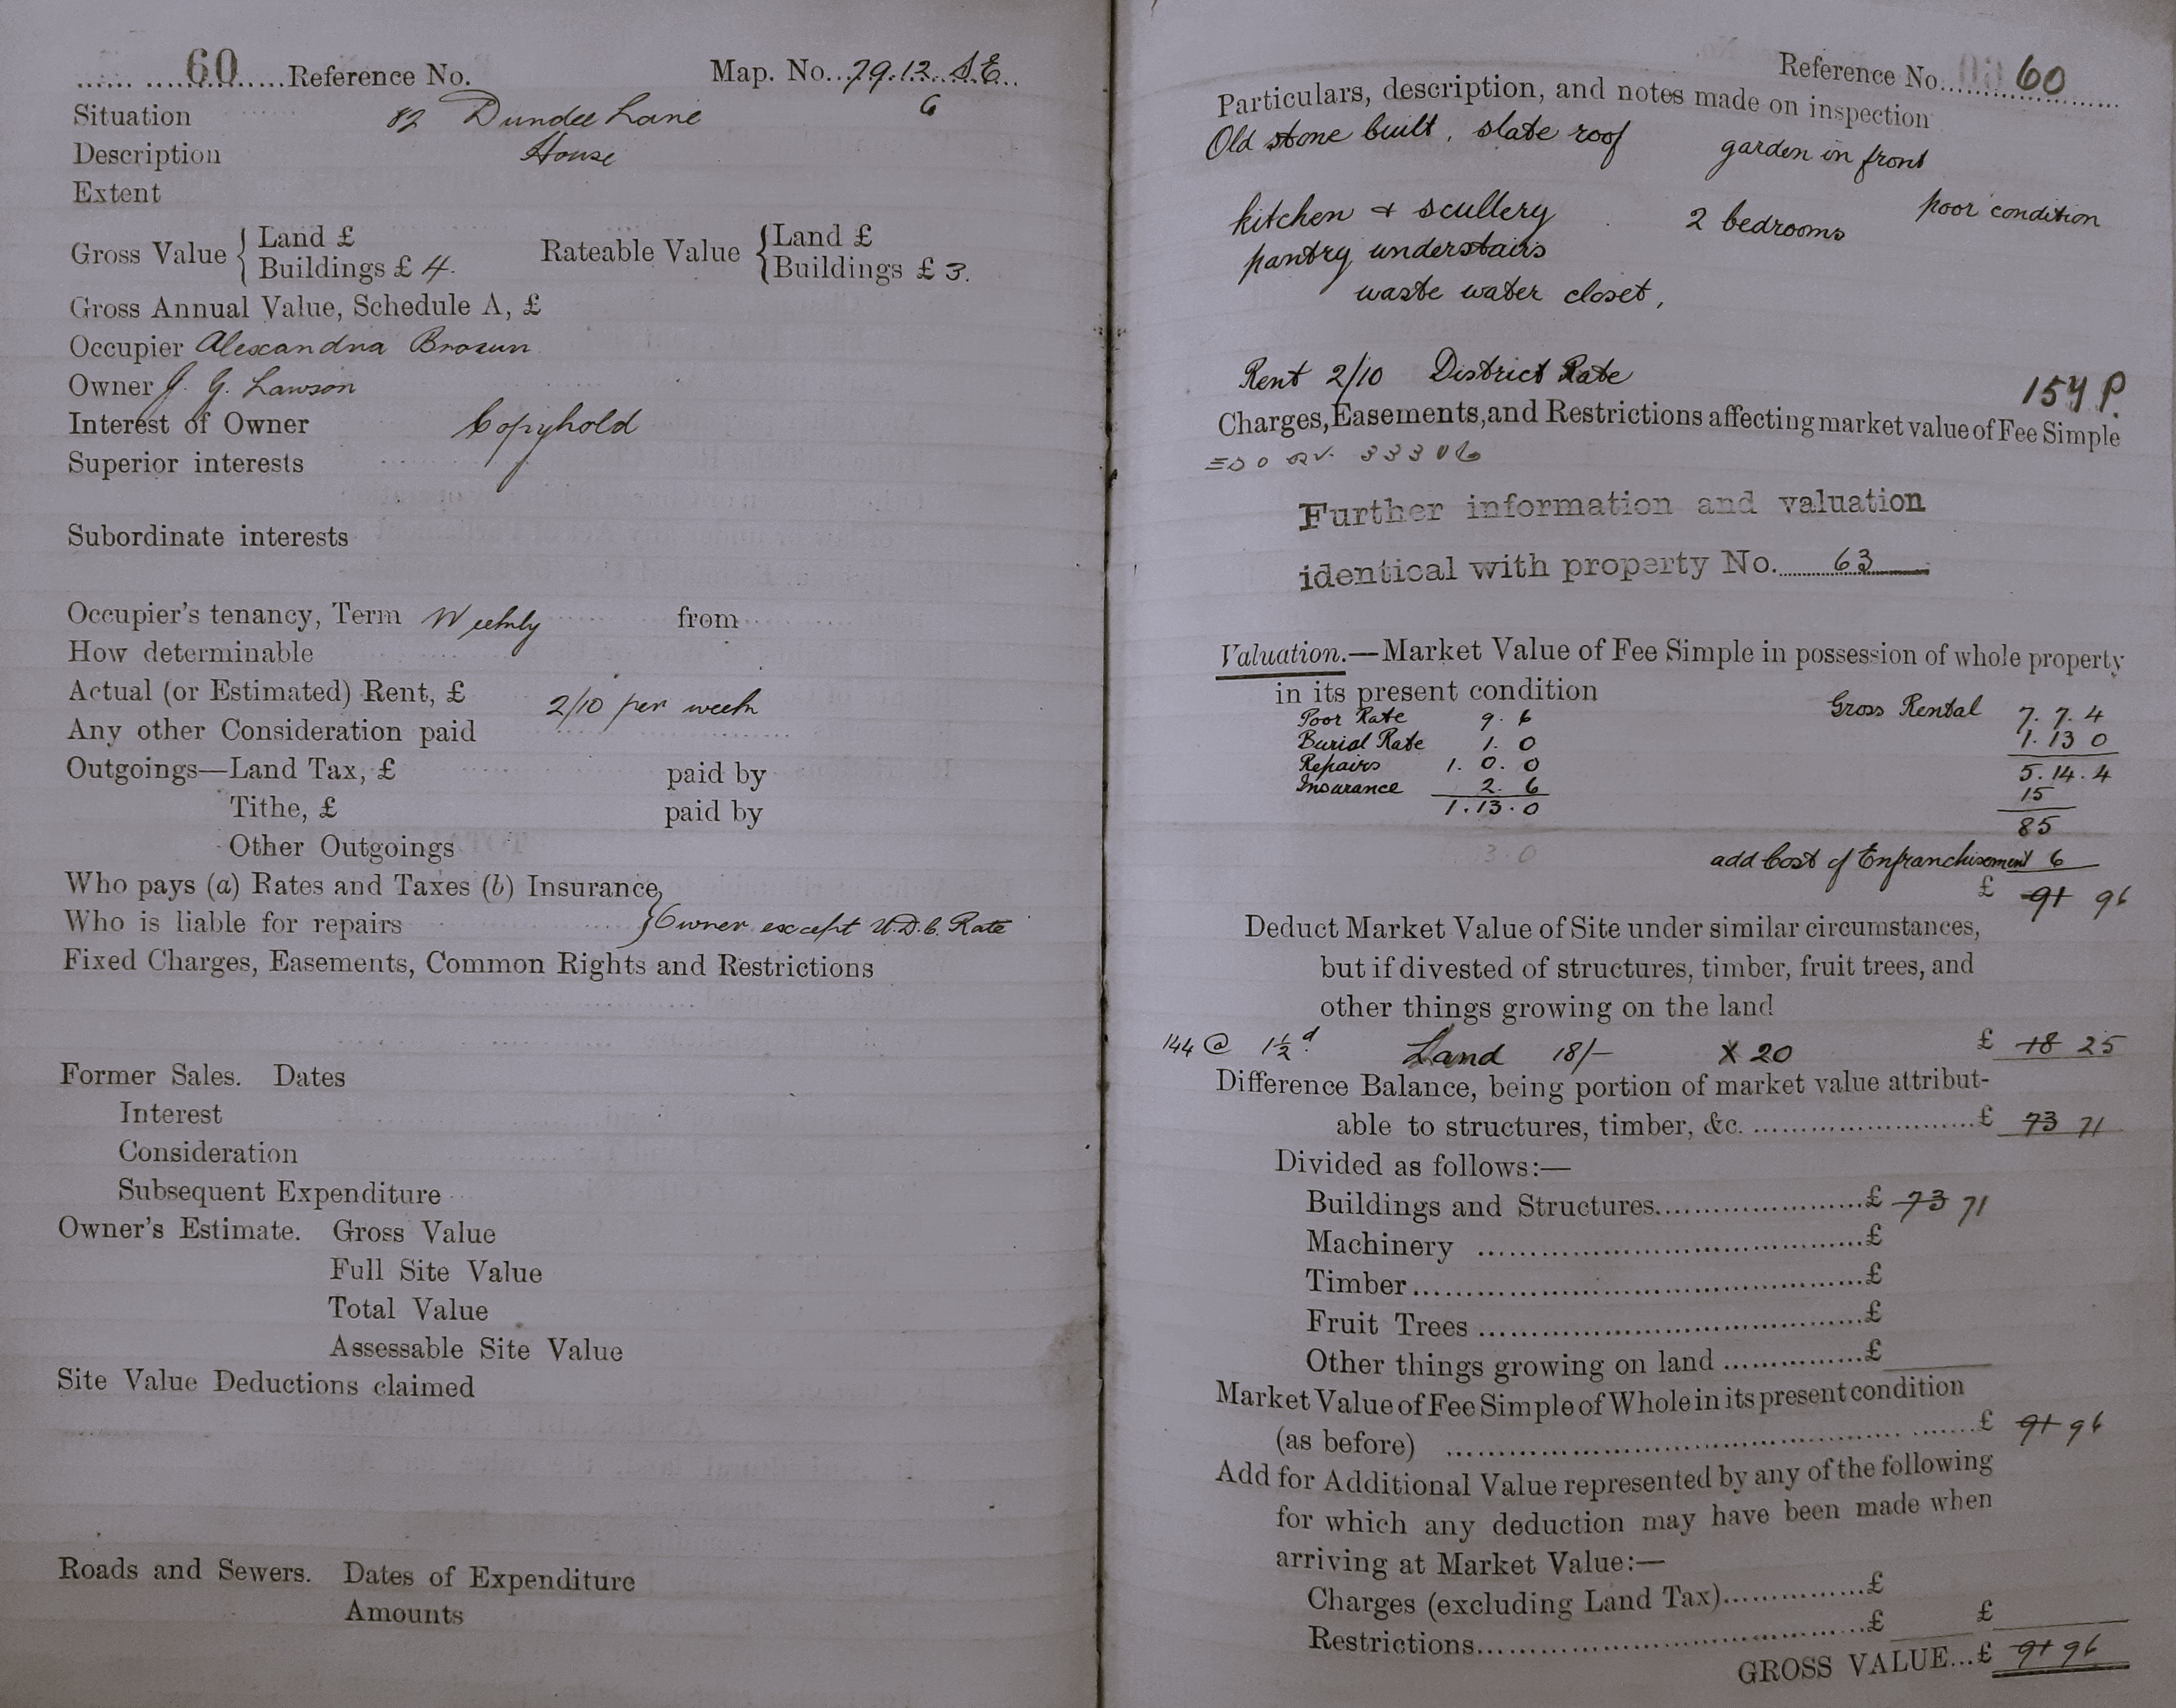 60 Reference No. Map. No. 79.12 S.E.
6
Situation 82 Dundee Lane
Description House
Extent
Gross Value { Land £ Rateable Value { Land £
Buildings £ 4. Buildings £ 3.
Gross Annual Value, Schedule A, £
Occupier Alexandria Brown
Owner J. G. Lawson
Interest of Owner Copyhold
Superior interests
Subordinate interests
Occupier's tenancy, Term Weekly from
How determinable
Actual (or Estimated) Rent, £ 2/10 per week
Any other Consideration paid
Outgoings—Land Tax, £ paid by
Tithe, £ paid by
Other Outgoings
Who pays (a) Rates and Taxes (b) Insurance
Who is liable for repairs } Owner except U.D.C. Rate
Fixed Charges, Easements, Common Rights and Restrictions
Former Sales. Dates
Interest
Consideration
Subsequent Expenditure
Owner's Estimate. Gross Value
Full Site Value
Total Value
Assessable Site Value
Site Value Deductions claimed
Roads and Sewers. Dates of Expenditure
Amounts
Reference No. 60
Particulars, description, and notes made on inspection
Old stone built, slate roof garden in front
kitchen + scullery 2 bedrooms poor condition
pantry understairs
waste water closet,
Rent 2/10 District Rate
154 P.
Charges, Easements, and Restrictions affecting market value of Fee Simple
Further information and valuation
identical with property No. 63
Valuation.—Market Value of Fee Simple in possession of whole property
in its present condition
Poor Rate 9. 6 Gross Rental 7. 7. 4
Burial Rate 1. 0 1. 13 0
Repairs 1. 0. 0 5. 14. 4
Insurance 2. 6 15
1. 13. 0 85
add Cost of Enfranchisement 6
£ 91 96
Deduct Market Value of Site under similar circumstances,
but if divested of structures, timber, fruit trees, and
other things growing on the land
144 @ 1½d Land 18/- X 20 £ 18 25
Difference Balance, being portion of market value attribut-
able to structures, timber, &c. £ 73 71
Divided as follows:—
Buildings and Structures £ 73 71
Machinery £
Timber £
Fruit Trees £
Other things growing on land £
Market Value of Fee Simple of Whole in its present condition
(as before) £ 91 96
Add for Additional Value represented by any of the following
for which any deduction may have been made when
arriving at Market Value:—
Charges (excluding Land Tax) £
Restrictions £ £
GROSS VALUE...£ 91 96